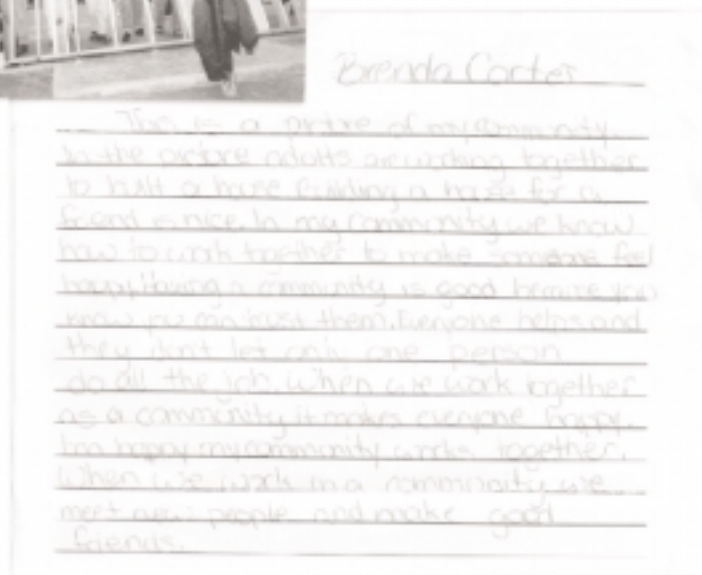 Brenda Cortes
This is a pictre of my community.
In the pictre adults are working together
to built a house. Building a house for a
friend is nice. In my community we know
how to work together to make someone feel
happy. Having a community is good because you
know you can trust them. Everyone helps and
they don't let only one person
do all the job. When we work together
as a community it makes everyone happy.
I'm happy my community works together.
When we work in a community we
meet new people and make good
friends.